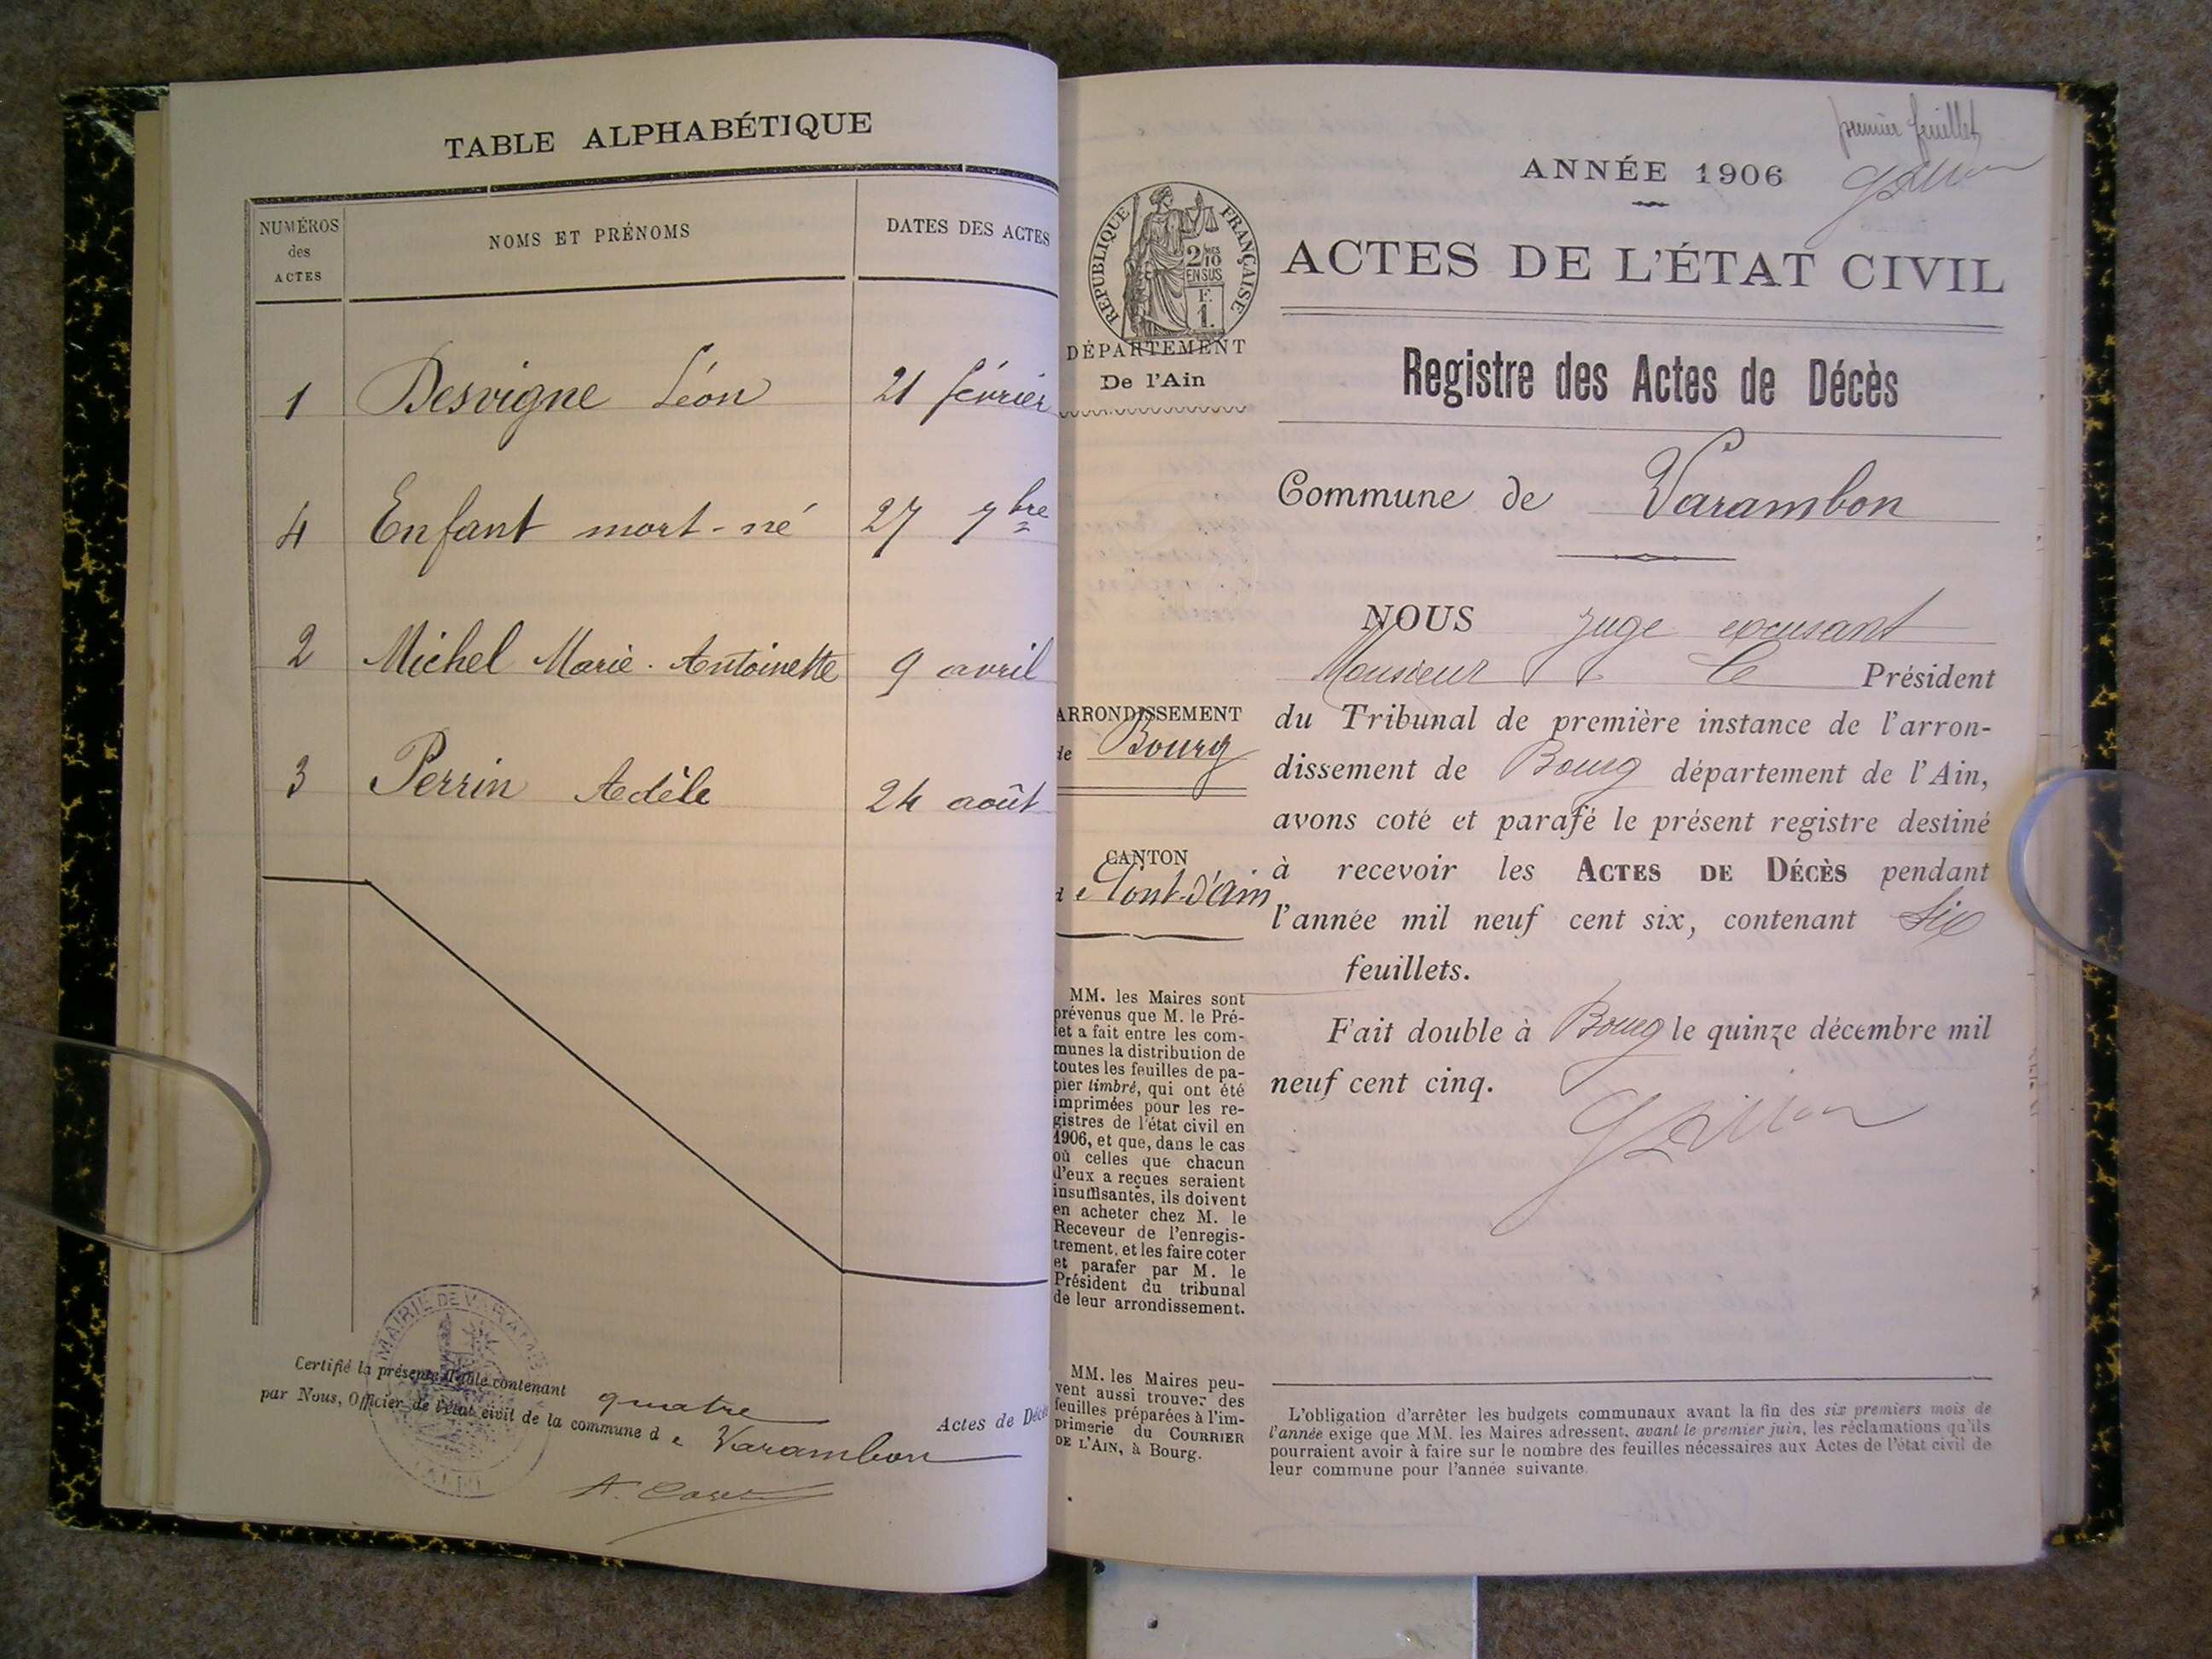 TABLE ALPHABÉTIQUE
NUMÉROS des ACTES NOMS ET PRÉNOMS DATES DES ACTES
1 Desvigne Léon 21 février
4 Enfant mort-né 27 7bre
2 Michel Marie-Antoinette 9 avril
3 Perrin Adèle 24 août
MAIRIE DE VARAMBON
Certifié la présente Table contenant quatre Actes de Décès
par Nous, Officier de l'état civil de la commune de Varambon
premier feuillet
ANNÉE 1906
RÉPUBLIQUE FRANÇAISE
2/10
EN SUS
F.
1.
ACTES DE L'ÉTAT CIVIL
DÉPARTEMENT
De l'Ain
Registre des Actes de Décès
Commune de Varambon
NOUS juge excusant
Monsieur Le Président
du Tribunal de première instance de l'arron-
dissement de Bourg département de l'Ain,
avons coté et parafé le présent registre destiné
à recevoir les ACTES DE DÉCÈS pendant
l'année mil neuf cent six, contenant six
feuillets.
Fait double à Bourg le quinze décembre mil
neuf cent cinq.
ARRONDISSEMENT
de Bourg
CANTON
de Pont-d'Ain
MM. les Maires sont
prévenus que M. le Pré-
fet a fait entre les com-
munes la distribution de
toutes les feuilles de pa-
pier timbré, qui ont été
imprimées pour les re-
gistres de l'état civil en
1906, et que, dans le cas
où celles que chacun
d'eux a reçues seraient
insuffisantes, ils doivent
en acheter chez M. le
Receveur de l'enregis-
trement, et les faire coter
et parafer par M. le
Président du tribunal
de leur arrondissement.
MM. les Maires peu-
vent aussi trouver des
feuilles préparées à l'im-
primerie du COURRIER
DE L'AIN, à Bourg.
L'obligation d'arrêter les budgets communaux avant la fin des six premiers mois de
l'année exige que MM. les Maires adressent, avant le premier juin, les réclamations qu'ils
pourraient avoir à faire sur le nombre des feuilles nécessaires aux Actes de l'état civil de
leur commune pour l'année suivante.